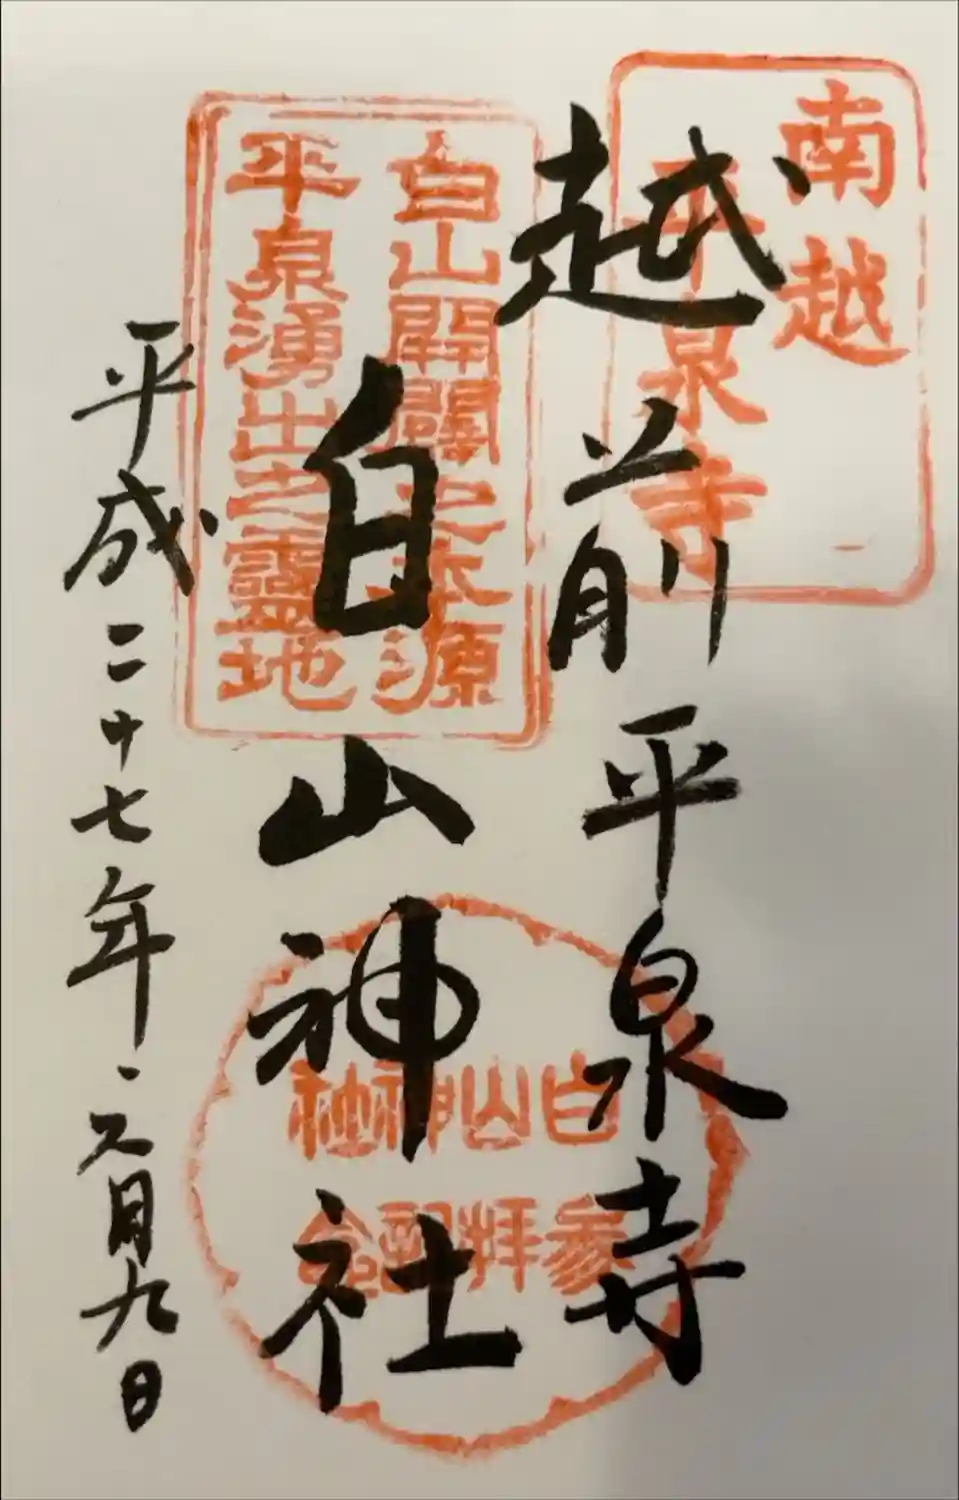 南越
平泉寺
越前平泉寺
白山開闢之本源
平泉湧出之靈地
白山神社
白山神社
参拝記念
平成二十七年 六月九日